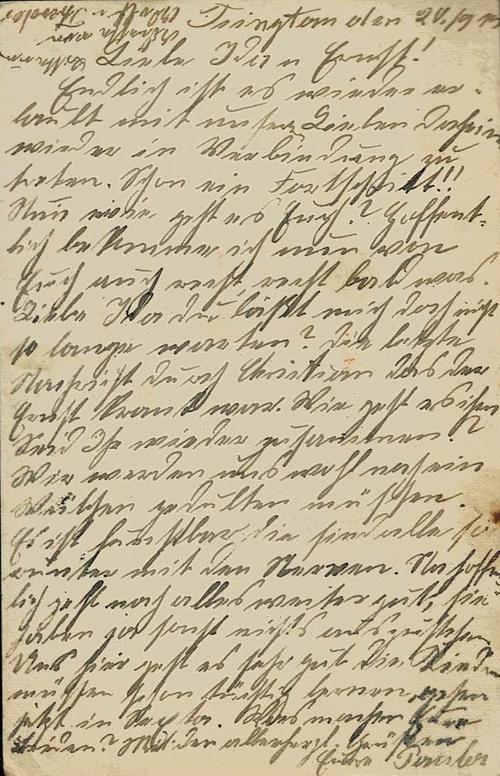 Tsingtau den 20./9.
Liebe Ida u Ernst!
Endlich ist es wieder er-
laubt mit unsern Lieben daheim
wieder in Verbindung zu
treten. Schon ein Fortschritt!!
Nun wie geht es Euch? Hoffent-
lich bekomme ich nun von
Euch auch recht recht bald was.
Liebe Ida du läßt mich doch nicht
so lange warten? Die letzte
Nachricht durch Christian das der
Ernst krank war. Wie geht es ihm?
Seid Ihr wieder zusammen?
Wir werden uns wohl noch ein
Weilchen gedulten müssen.
Es ist furchtbar, die sind alle so
runter mit den Nerven. Na hoffent
lich geht noch alles weiter gut, sie
haben ja sonst nichts auszustehen.
Uns hier geht es sehr gut die Kinder
müssen schon tüchtig lernen, gehen
jetzt in Sexta. Was machen Eure
beiden? Mit den allerherzl. Grüßen
Eure